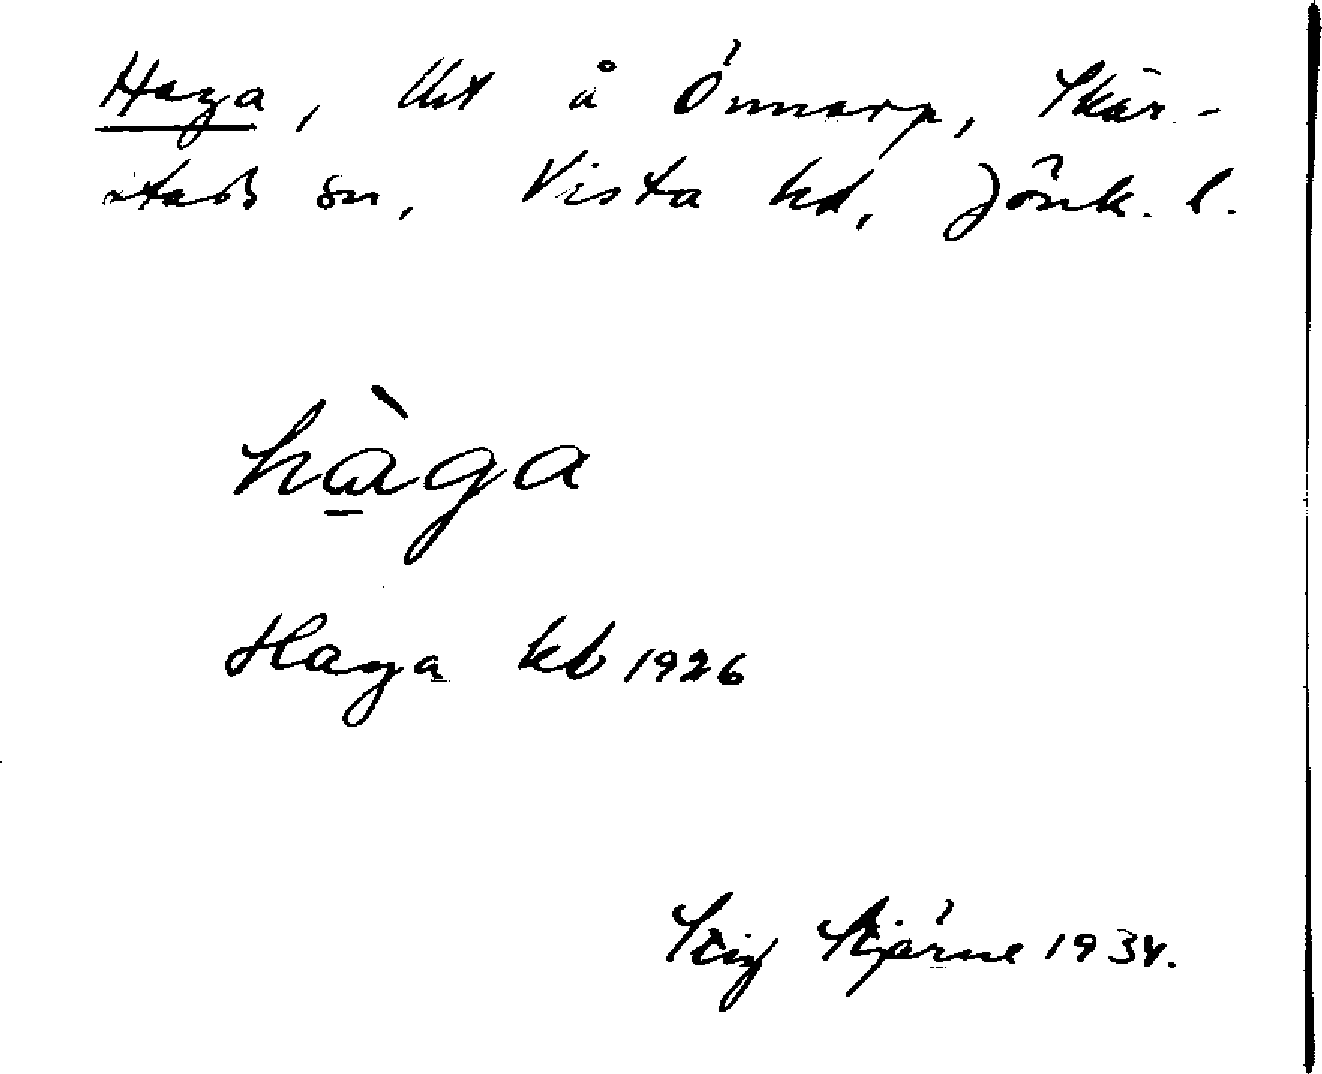 Haga, lht å Önnarp, Skär-
stads sn, Vista hd, Jönk. l.
hàga
Haga kb 1926
Stig Stjärne 1934.